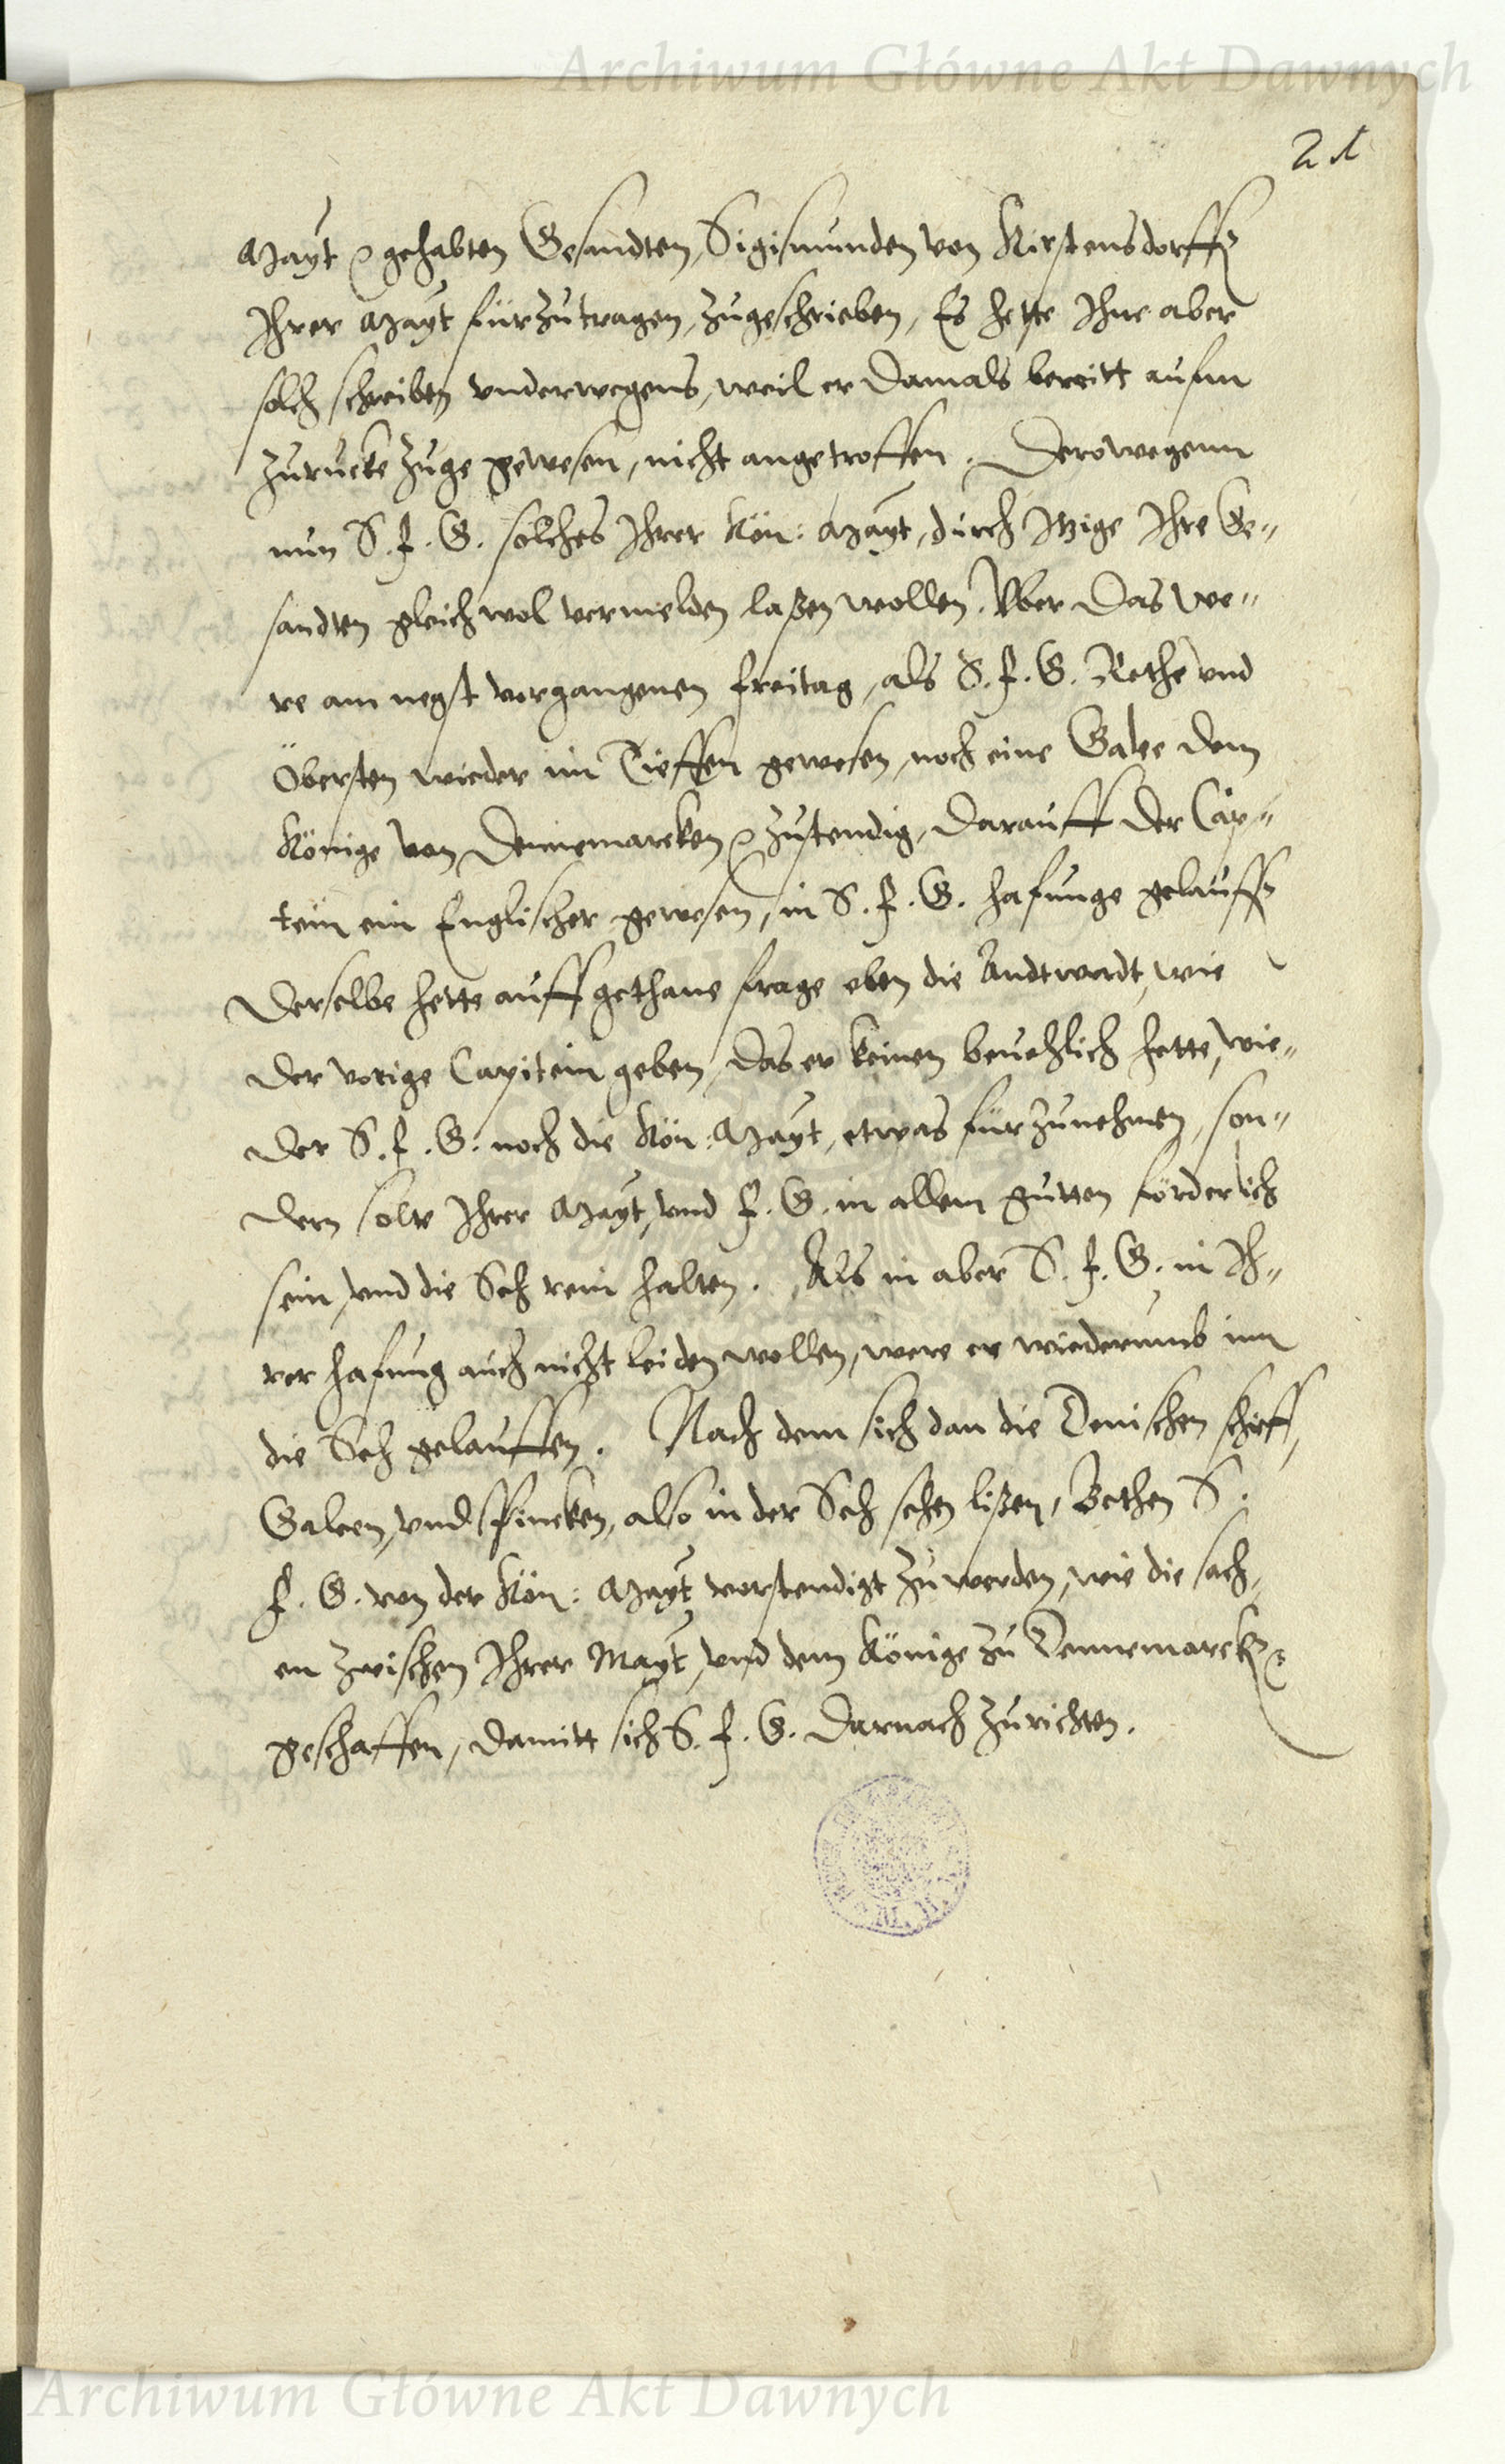 Archiwum Główne Akt Dawnych
21
Mayt gehabten Gesandten, Sigismunden von Kirstensdorff
Ihrer Mayt fürzutragen, zugeschrieben, Es hette Ihne aber
solch schreiben underwegens, weil er damals bereitt aufm
zurucke zuge gewesen, nicht angetroffen. Derowegenn
nun S. f. G. solches Ihrer Kön: Mayt, durch Itzige Ihre Ge„
sandten gleichwol vermelden laßen wollen. Vber das we„
re am negst vergangenen freitag, als S. f. G. Rethe und
Öbersten wieder im Tieffen gewesen, noch eine Galee dem
Könige von Dennemarcken zustendig, darauff der Cap„
tein ein Englischer gewesen, in S. f. G. hafunge gelauffen
Derselbe hette auff gethane frage eben die Andtwordt, wie
der vorige Capitein geben, das er keinen beuehlich hette, wie„
der S. f. G. noch die Kön: Mayt, etwas fürzunehmen, son„
dern solte Ihrer Mayt, und f. G. in allem gutten förderlich
sein, und die Seh rein halten. Als in aber S. f. G. in Ih„
rer hafung auch nicht leiden wollen, were er wiederumb inn
die Seh gelauffen. Nach dem sich dan die Denischen schiff,
Galeen, und Pincken, also in der Seh sehen lißen, Bethen S.
f. G. von der Kön: Mayt verstendigt zu werden, wie die sach„
en zwischen Ihrer Mayt, und dem Könige zu Dennemarck
geschaffen, damitt sich S. f. G. darnach zurichten.
Archiwum Główne Akt Dawnych